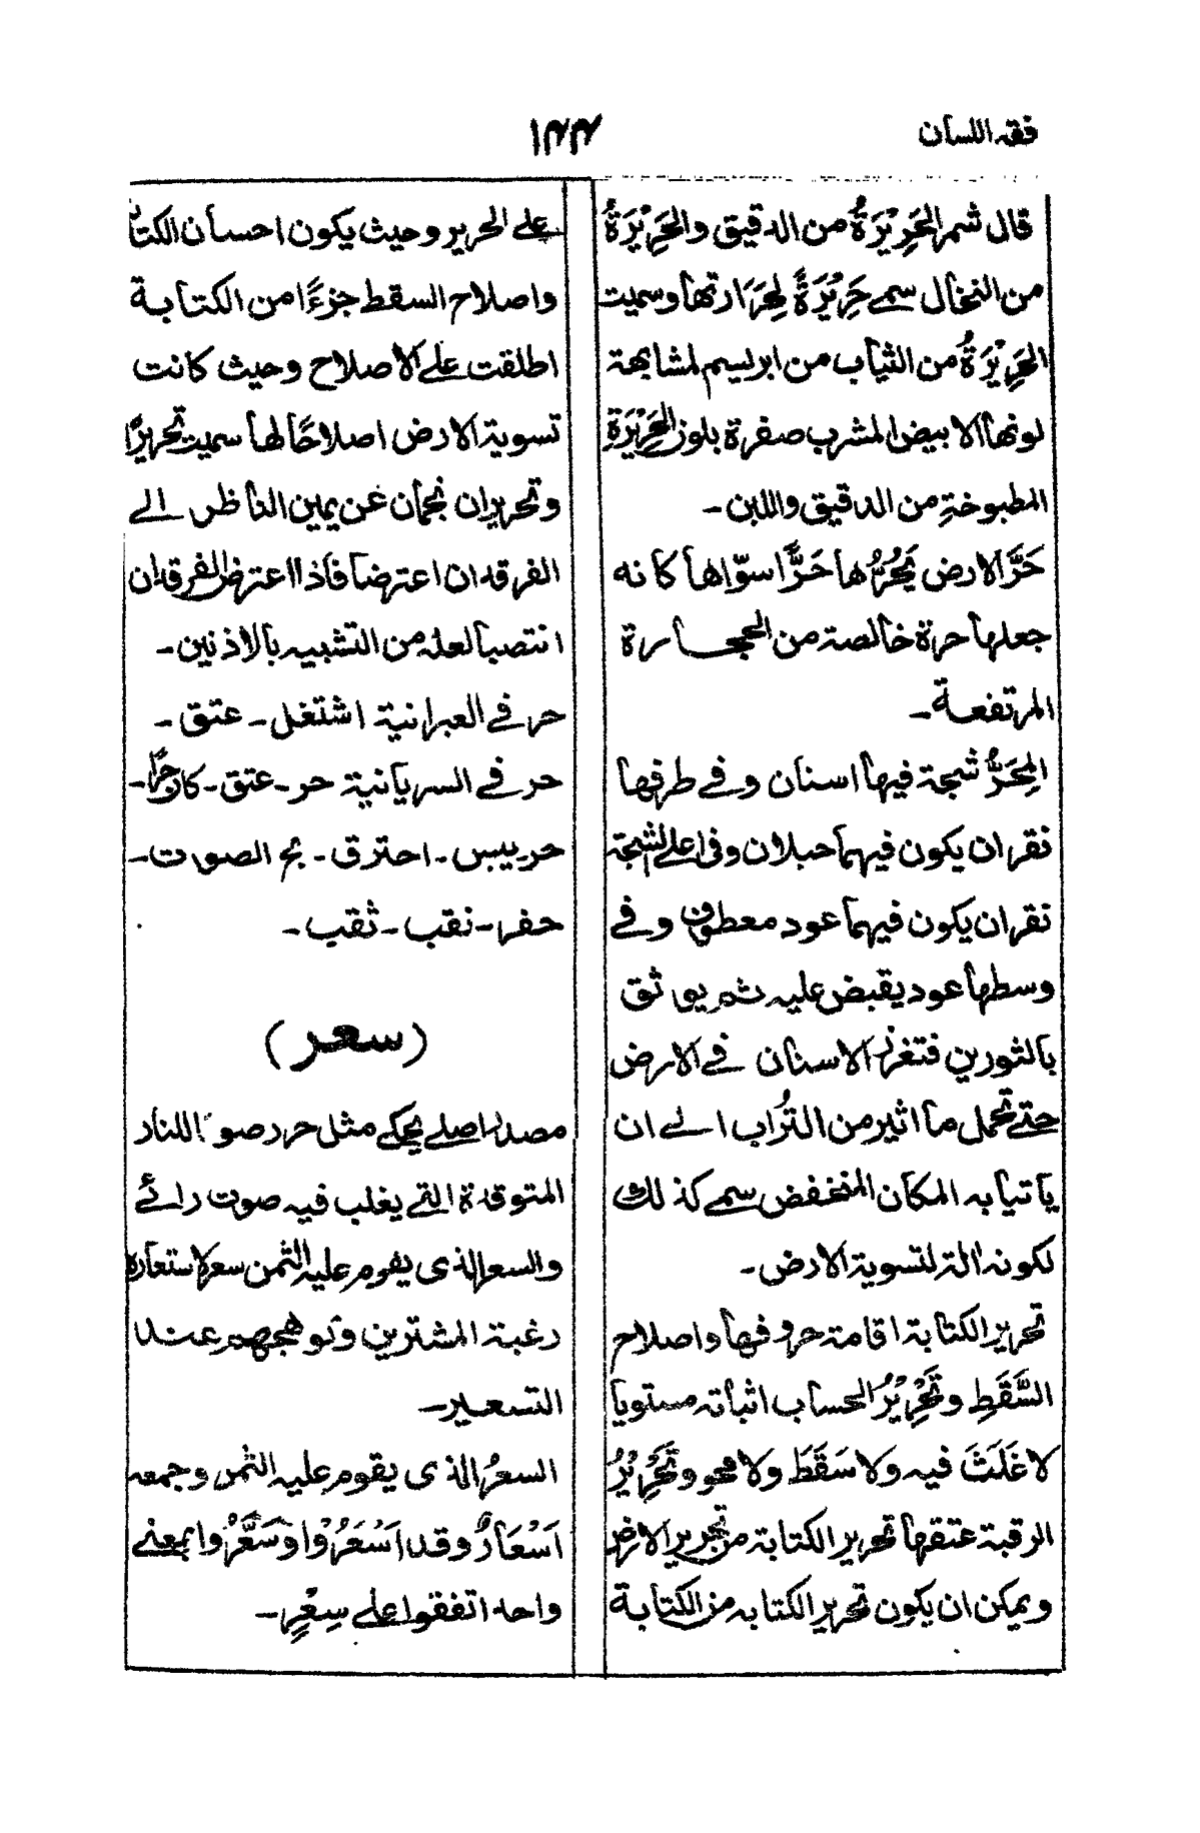 فقه اللسان
١٣٣
قال شمر الحَرِيْرَةُ من الدقيق والحَرِيْرَةُ
من النخال سمے حَرِيْرَةً لِحَرَارتها وسميت
الحَرِيْرَةُ من الثياب من ابريسم لمشابهة
لونها الابيض المشرب صفرة بلون الحَرِيْرَةِ
المطبوخةِ من الدقيق واللبن -
حَرَّ الارض يَحُرُّها حَرًّا سوّاها كانه
جعلها حرة خالصة من الحجارة
المرتفعة -
المِحَرُّ شبحة فيها اسنان وفے طرفها
نقران يكون فيهما حبلان وفی اعلے الشبحة
نقران يكون فيهما عود معطوف وفے
وسطها عود يقبض عليه ثم يوثق
بالثورين فتغرز الاسنان فے الارض
حتے تحمل ما اثير من التُراب الے ان
ياتيا به المكان المنخفض سمے كذلك
لكونه الة لتسوية الارض -
تحرير الكتابة اقامة حروفها واصلاح
السَّقَطِ وتَحْرِيْرُ الحساب اثباته مستويا
لا غَلَثَ فيه ولا سَقَطَ ولا محو وتَحْرِيْرُ
الرقبة عتقها تحرير الكتابة من تحرير الارض
ويمكن ان يكون تحرير الكتابه من الكتابة
علے الحرير وحيث يكون احسان الكتاب
واصلاح السقط جزءًا من الكتابة
اطلقت علے الاصلاح وحيث كانت
تسوية الارض اصلاحًا لها سميت تحريرًا
وتحريران نجمان عن يمين الناظر الے
الفرقدان اعترضا فاذا اعترض الفرقدان
انتصبا لعله من التشبيه بالاذنين -
حر فے العبرانية اشتغل - عتق -
حر فے السريانية حر - عتق - كان حرًا -
حر يبس - احترق - بح الصوت -
حفر - نقب - ثقب -
(سعر)
مصدر اصلے يحكے مثل حر دصوتا للنار
المتوقدة التے يغلب فيه صوت رائے
والسعر الذی يقوم عليه الثمن سعر لاستعارة
رغبة المشترين وتوهجهم عند
التسعير -
السعرُ الذی يقوم عليه الثمن وجمعه
اَسْعَارٌ وقد اَسْعَرُوْا وَسَعَّرُوْا بمعنے
واحد اتفقوا علے سِعْرٍ -